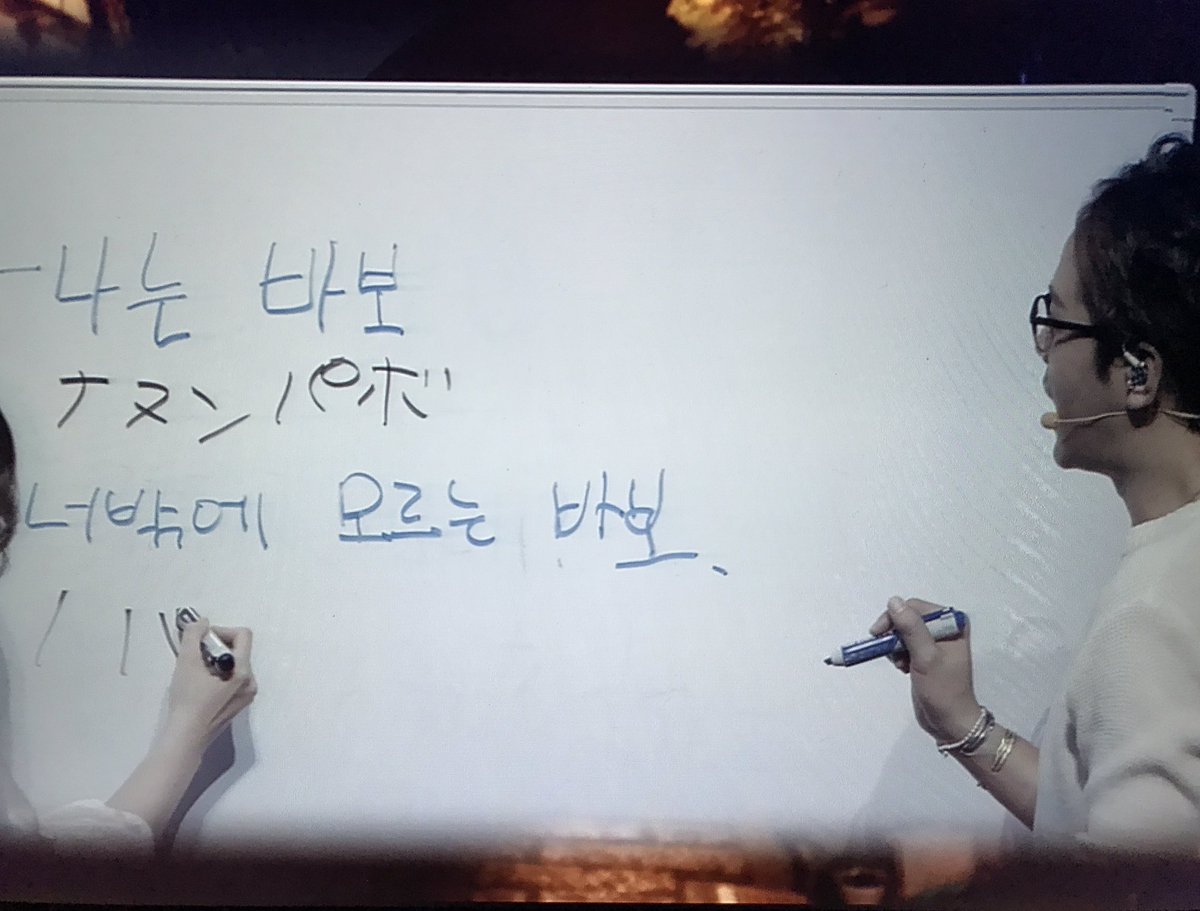 나는 바보
ナヌン パボ
너밖에 모르는 바보、